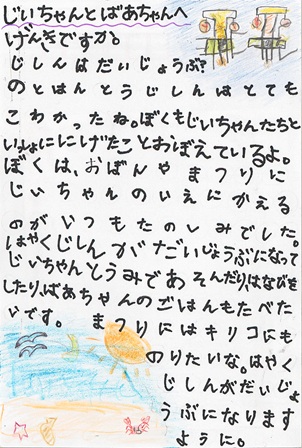 じいちゃんとばあちゃんへ
げんきですか。
じしんはだいじょうぶ?
のとはんとうじしんはとても
こわかったね。ぼくもじいちゃんたちと
いっしょににげたことおぼえているよ。
ぼくは、おぼんや まつりに
じいちゃんのいえにかえる
のがいつもたのしみでした。
はやくじしんがだいじょうぶになって
じいちゃんとうみであそんだり、はなびを
したり、ばあちゃんのごはんもたべた
いです。 まつりにはキリコにも
のりたいな。はやく
じしんがだいじょ
うぶになります
ように。